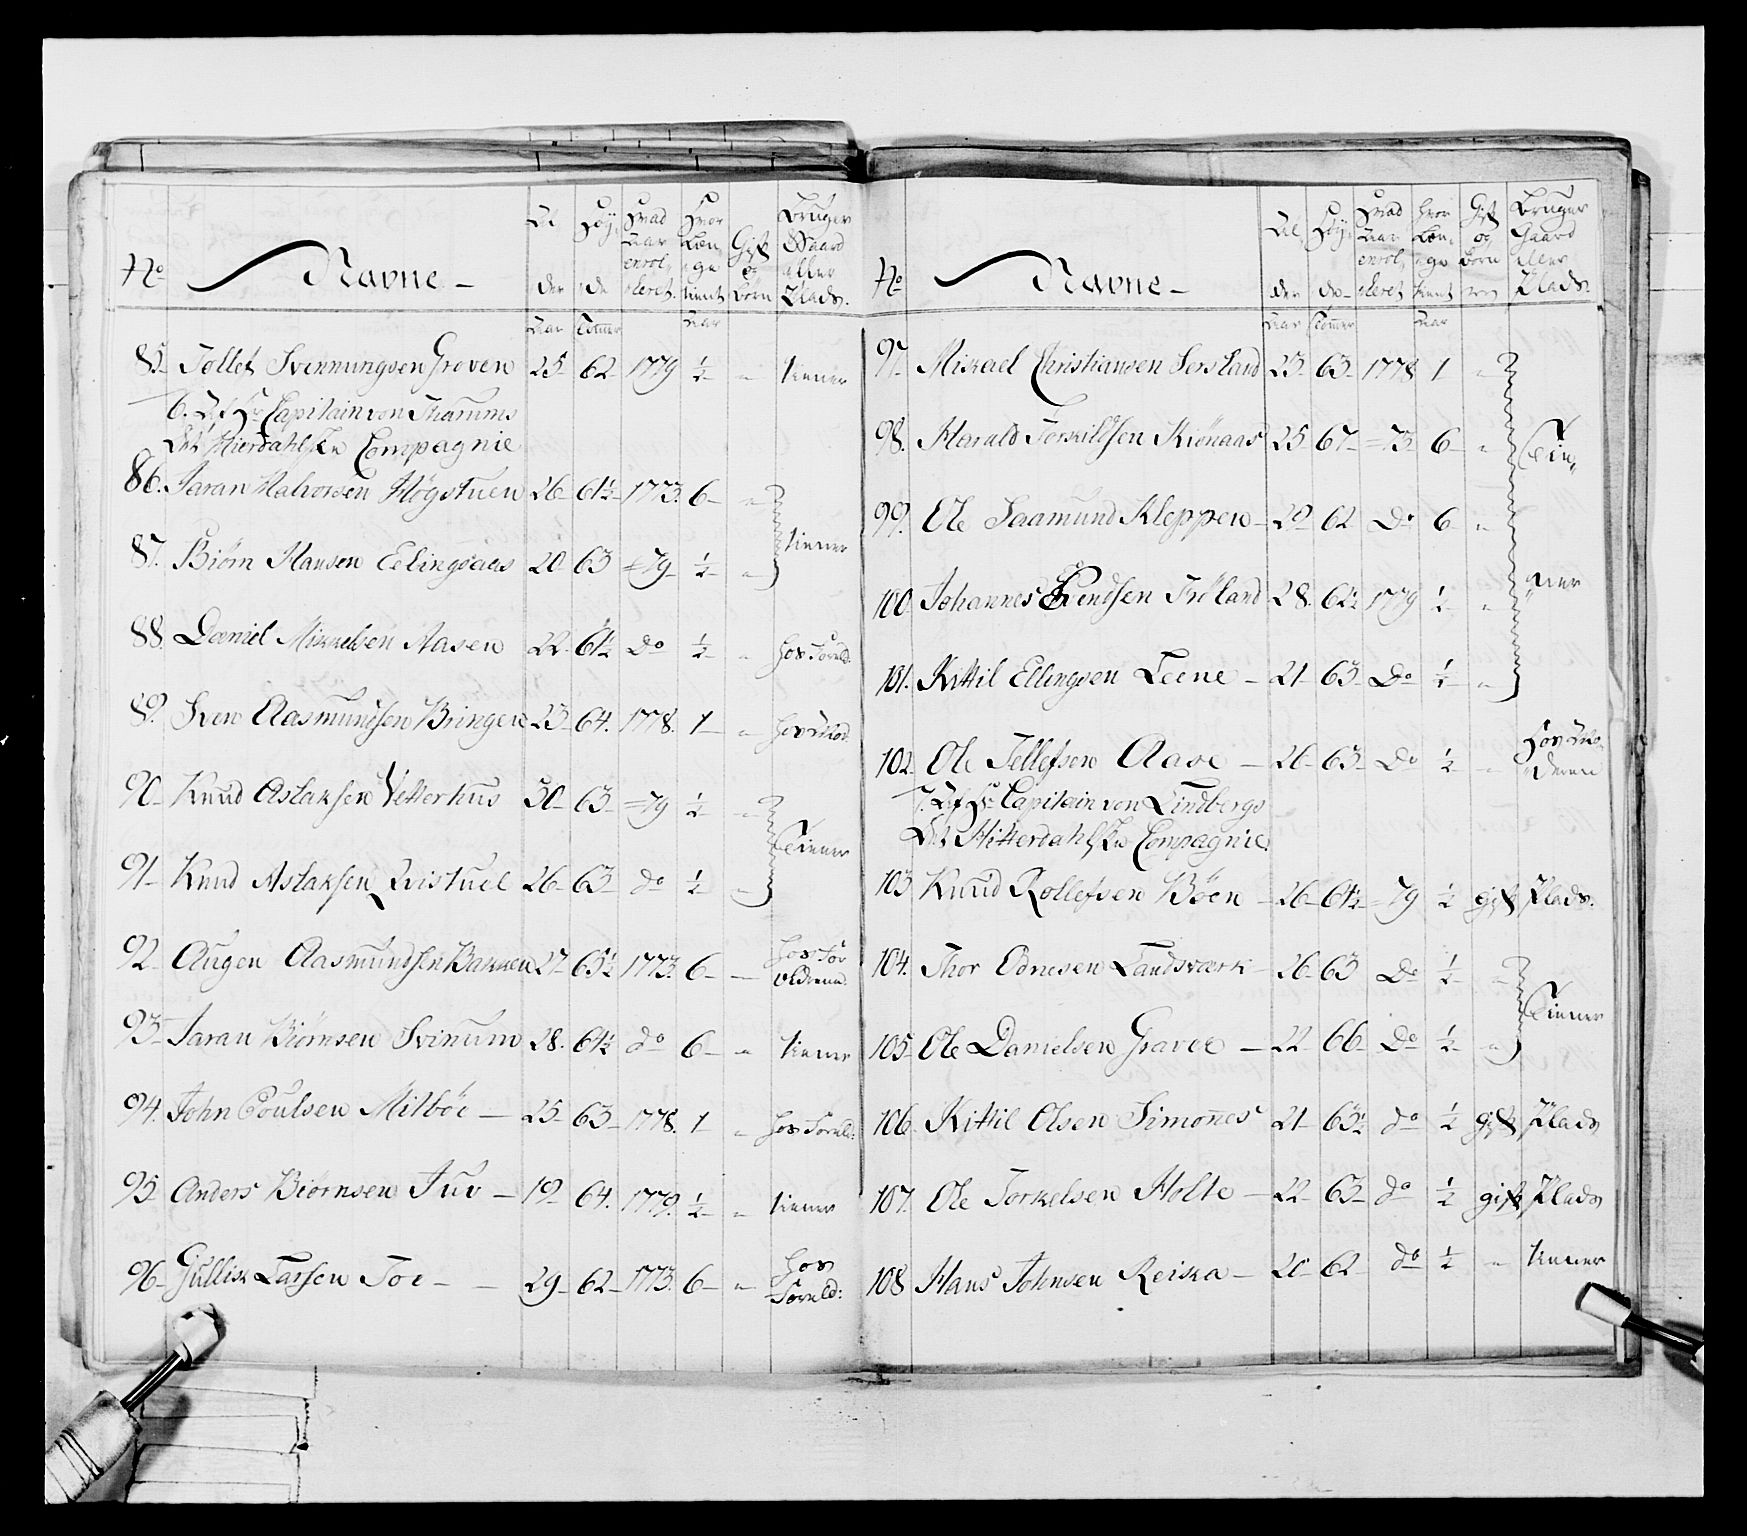 No Navne - Al der Høy de Hvad Aar enrol leret Hvor Læn ge tient Gift og Børn Bruger Gaard eller Plads.
Aar Tommer Aar
85. Tollef Svennungsen Groven 25 62 1779 ½ " tiener
6. Af Hr Capitain von Thamms
Hierdahlske Compagnie
86. Jaran Halvorsen Høgstuen 26 61½ 1773. 6 "
87. Biørn Hansen Eelingsaas 20 63 =79 ½ " tiener
88. Daniel Mikkelsen Aasen 22 61½ Do ½ " hos Foreld.
89. Sven Aasmundsen Bringen 23 64. 1778. 1 "
90. Knud Aslaksen Vetterhus 30 63 =79 ½ "
Tiener
91. Knud Aslaksen Qvistuel 26 63 do ½ "
92. Augen Aasmundsen Bakken 27 65½ 1773. 6 - hos For ældrene.
93. Jaran Biørnsen Svinum 28. 64½ do 6 " tiener
94. John Poulsen Milbøe - 25 63 1778. 1 " hos Foreld:
95. Anders Biørnsen Juv - 19 64. 1779. ½ " tiener
96. Gullik Larsen Toe - - 29 62 1773. 6 " hos Foreld:
No Navne - Al der Høy de Hvad Aar enrol leret Hvor Læn ge tient Gift og Børn Bruger Gaard eller Plads.
Aar Tommer Aar
97. Mikael Christiansen Sersland 23 63 1778 1 "
98. Harald Terkildsen Kiønaas 25 67 =73 6 " Tie,
99. Ole Saamund Kleppen - 29 62 Do 6 "
100. Johannes Knudsen Frøland 28. 62½ 1779 ½ " ner
101. Kittil Ellingsen Leene - 21 63 Do ½ "
102. Ole Tellefsen Aase - 26 63 Do ½ " hos Mo, deren
7. Af Hr Capitain von Lindbergs
Hitterdahlske Compagnie.
103 Knud Rollefsen Bøen - 26 61½ =79 ½ gift Plads.
104. Thor Ednesen Landsværk - 26 63 Do ½ "
Tiener
105. Ole Danielsen Graver - 22 66 Do ½ "
106. Kittil Olsen Simones 21 63½ do ½ gift Plads
107. Ole Torkelsen Holte - 22 63 do ½ gift Plads
108 Hans Johnsen Reiska - 20 62 do ½ " tiener